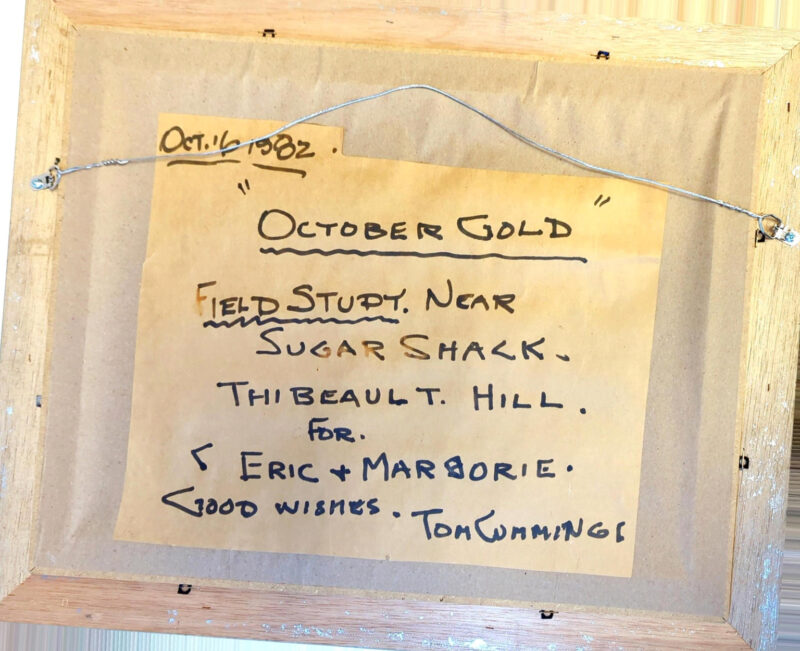 Oct. 16 1982.
"October Gold"
Field Study. Near
Sugar Shack.
Thibeault. Hill.
For.
Eric + Marjorie.
Good wishes. Tom Cummings